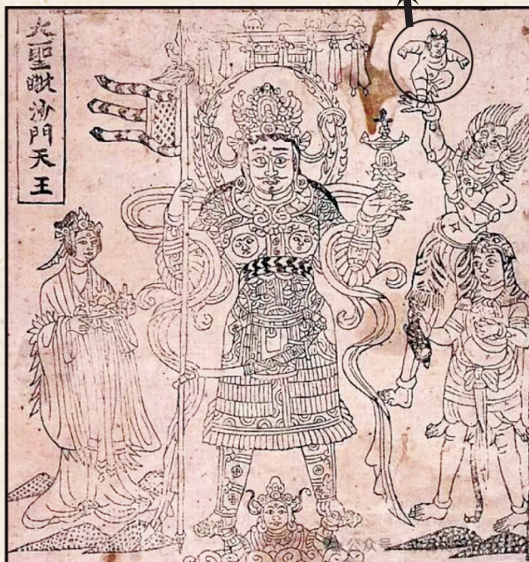 大聖毗沙門天王
公众号